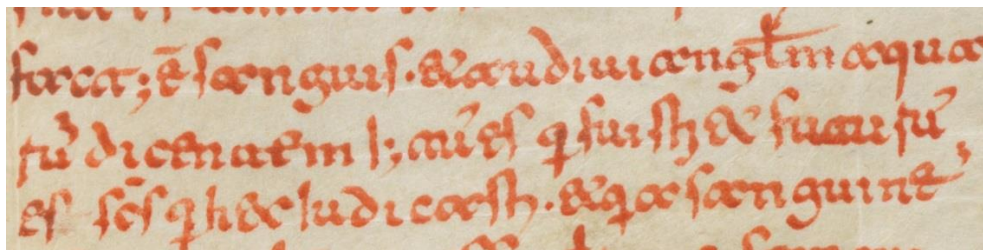 facta; ē sanguis. & audiui angl̄m aqua
rū dicentem es q fuisti & futurū
es sc̄s q hec iudicasti. & qa sanguinē